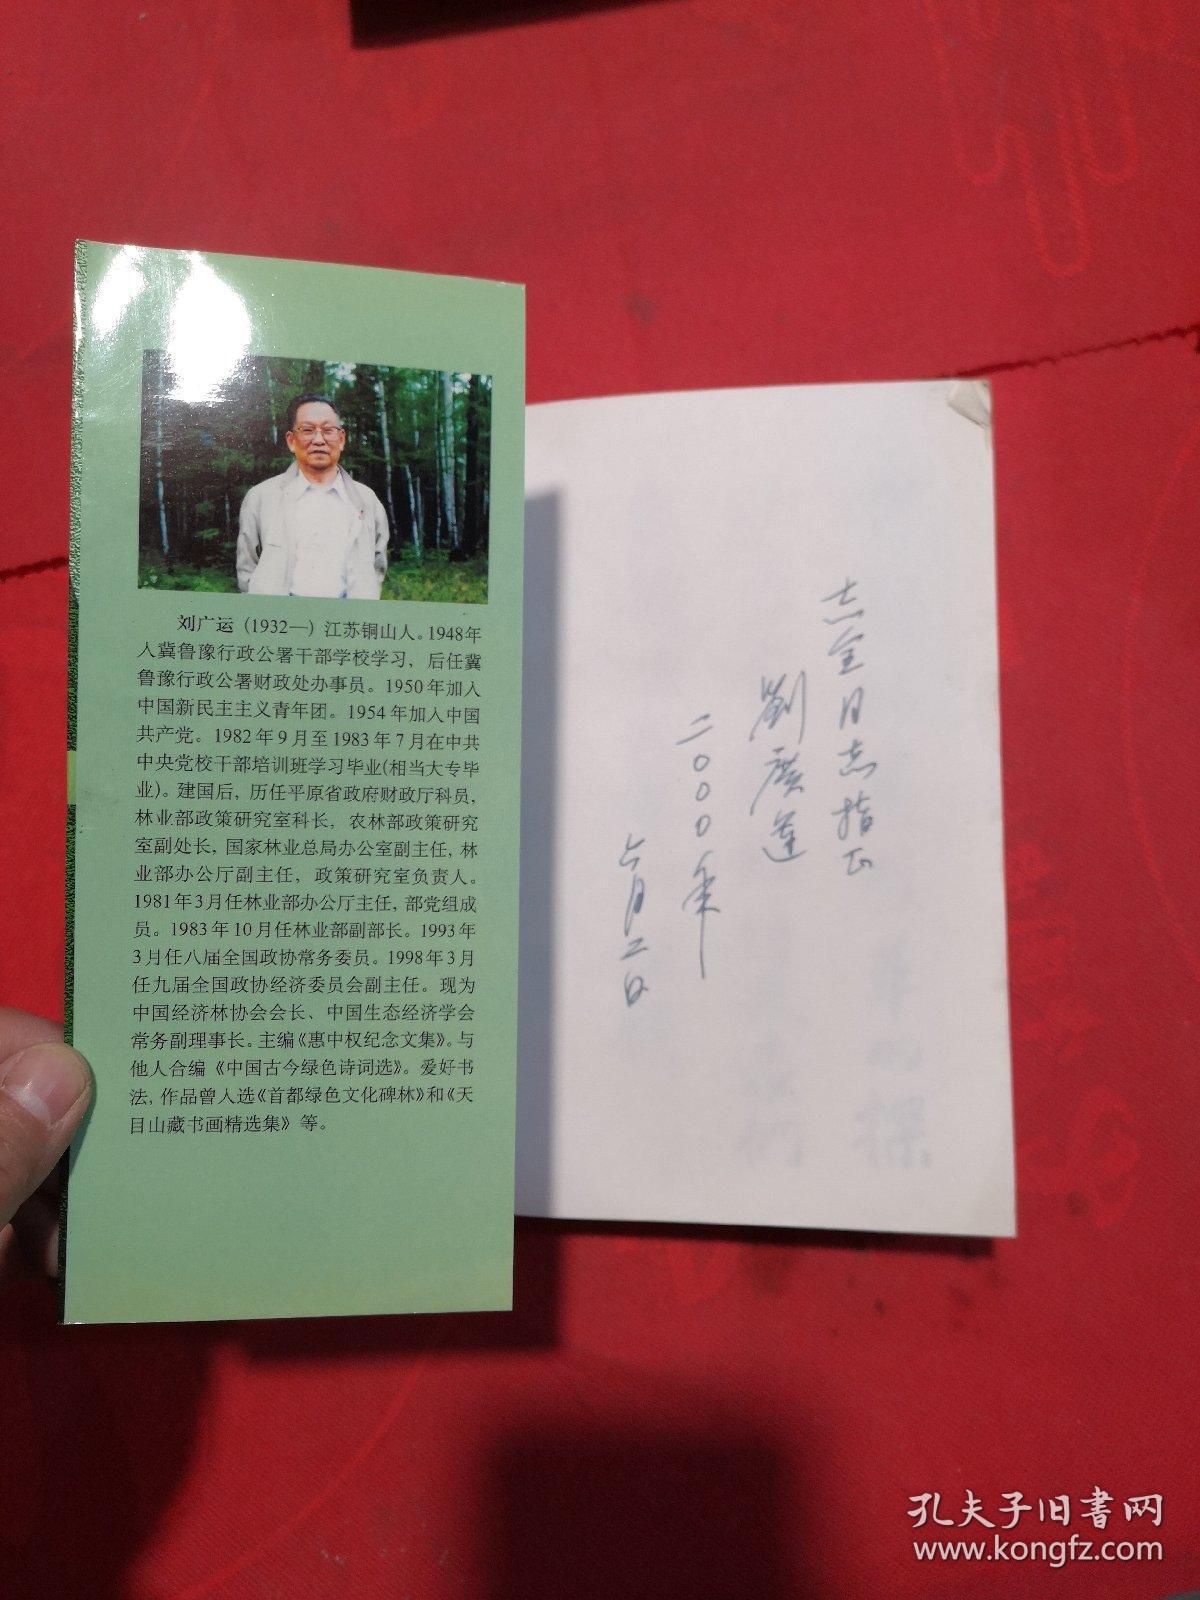 刘广运(1932—)江苏铜山人。1948年
入冀鲁豫行政公署干部学校学习，后任冀
鲁豫行政公署财政处办事员。1950年加入
中国新民主主义青年团。1954年加入中国
共产党。1982年9月至1983年7月在中共
中央党校干部培训班学习毕业(相当大专毕
业)。建国后，历任平原省政府财政厅科员，
林业部政策研究室科长，农林部政策研究
室副处长，国家林业总局办公室副主任，林
业部办公厅副主任，政策研究室负责人。
1981年3月任林业部办公厅主任，部党组成
员。1983年10月任林业部副部长。1993年
3月任八届全国政协常务委员。1998年3月
任九届全国政协经济委员会副主任。现为
中国经济林协会会长、中国生态经济学会
常务副理事长。主编《惠中权纪念文集》。与
他人合编《中国古今绿色诗词选》。爱好书
法，作品曾入选《首都绿色文化碑林》和《天
目山藏书画精选集》等。
志全同志指正
劉廣運
二〇〇〇年
六月二日
孔夫子旧书网
www.kongfz.com